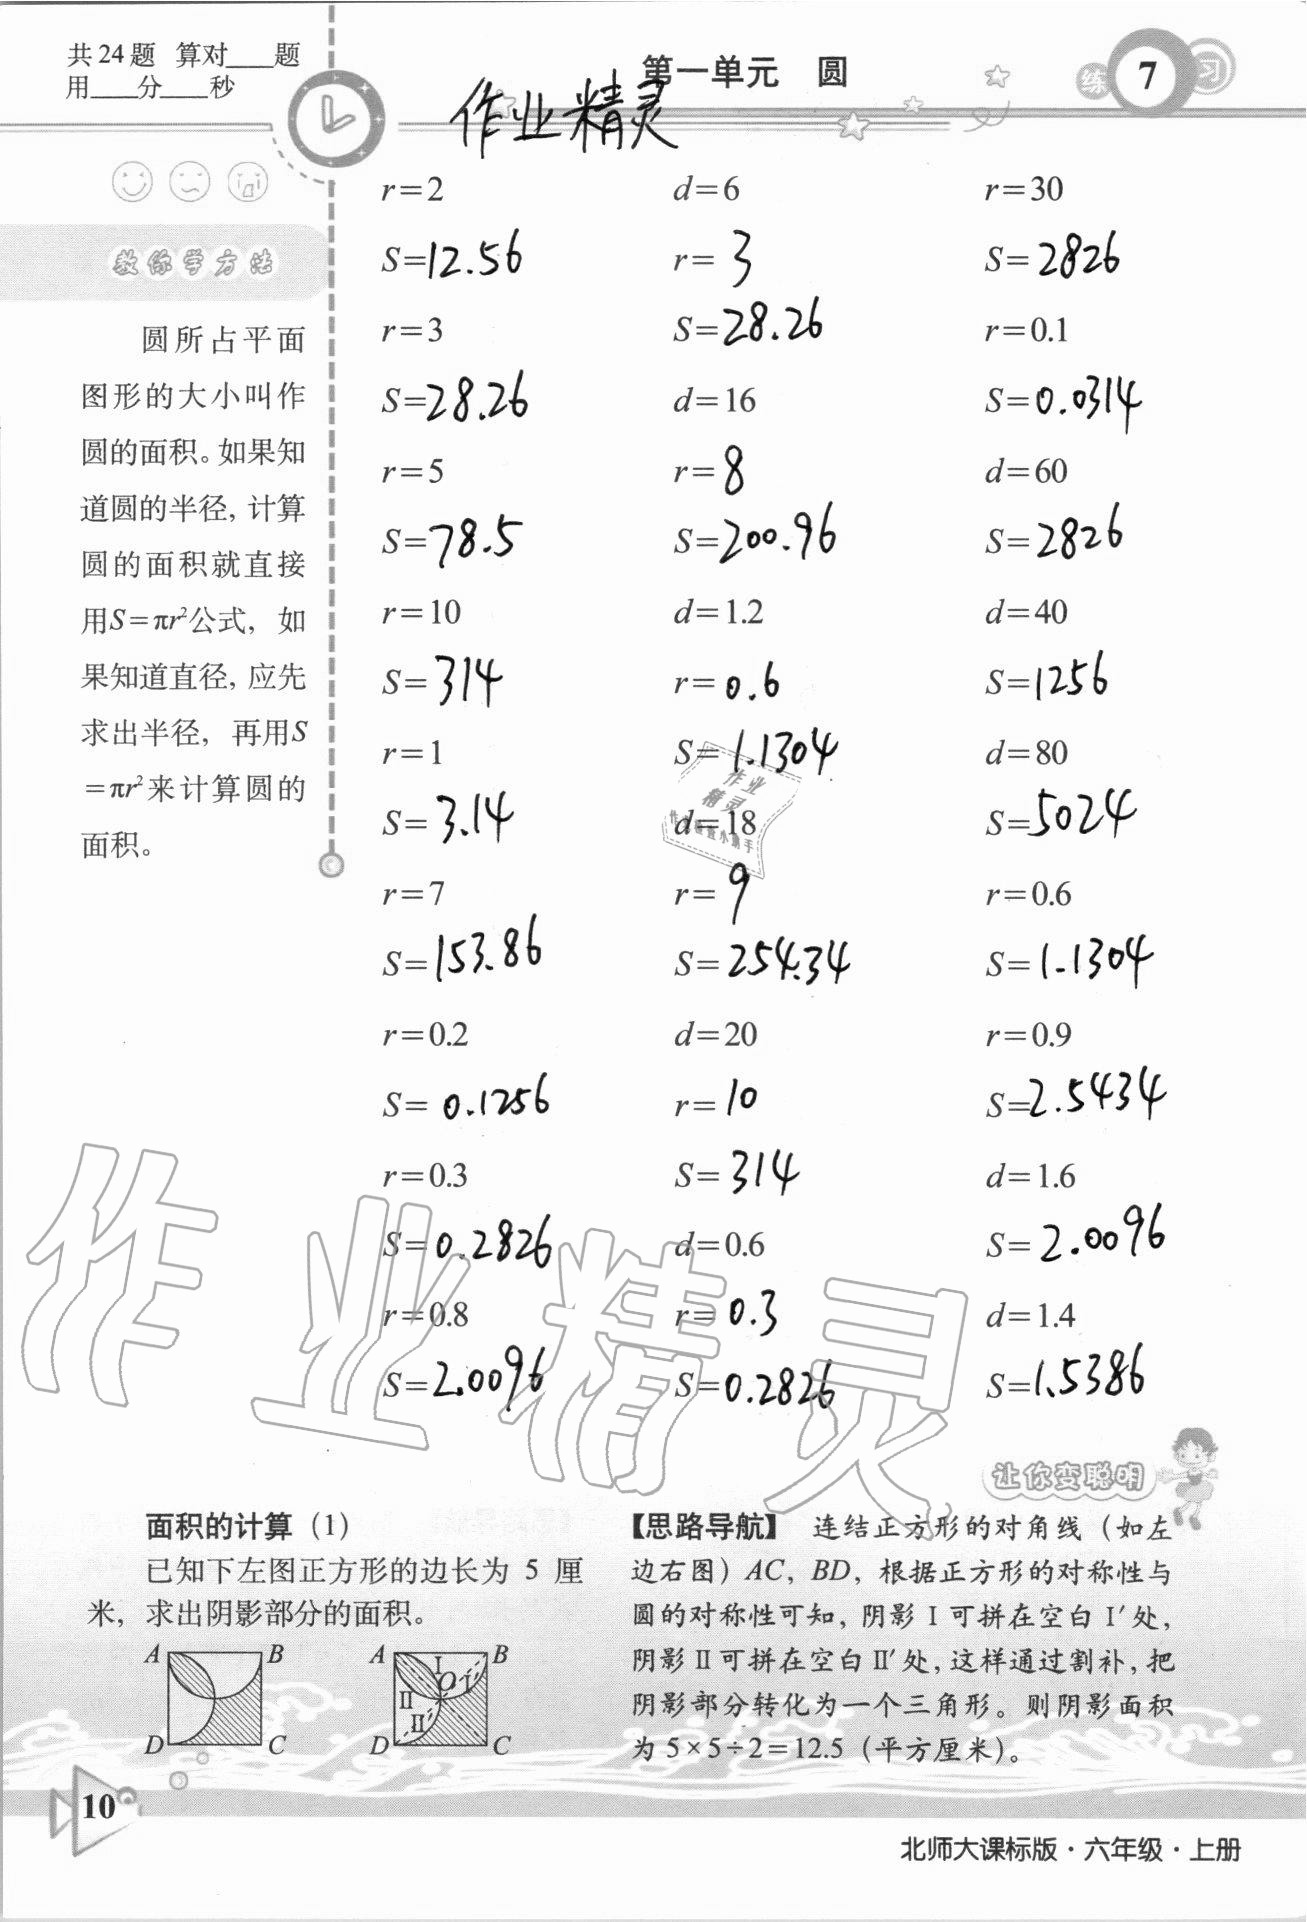 共24题 算对____题
用____分____秒
第一单元 圆
练 7 习
作业精灵
教你学方法
圆所占平面
图形的大小叫作
圆的面积。如果知
道圆的半径,计算
圆的面积就直接
用S=πr²公式，如
果知道直径,应先
求出半径，再用S
=πr²来计算圆的
面积。
r=2
S=12.56
r=3
S=28.26
r=5
S=78.5
r=10
S=314
r=1
S=3.14
r=7
S=153.86
r=0.2
S=0.1256
r=0.3
S=0.2826
r=0.8
S=2.0096
d=6
r=3
S=28.26
d=16
r=8
S=200.96
d=1.2
r=0.6
S=1.1304
d=18
r=9
S=254.34
d=20
r=10
S=314
d=0.6
r=0.3
S=0.2826
r=30
S=2826
r=0.1
S=0.0314
d=60
S=2826
d=40
S=1256
d=80
S=5024
r=0.6
S=1.1304
r=0.9
S=2.5434
d=1.6
S=2.0096
d=1.4
S=1.5386
作业
精灵
作业精灵
让你变聪明
面积的计算（1）
已知下左图正方形的边长为 5 厘
米，求出阴影部分的面积。
A B
D C
A I B
O I′
II
II′
D C
【思路导航】 连结正方形的对角线（如左
边右图）AC，BD，根据正方形的对称性与
圆的对称性可知，阴影 I 可拼在空白 I′处，
阴影 II 可拼在空白 II′处,这样通过割补,把
阴影部分转化为一个三角形。则阴影面积
为 5×5÷2=12.5（平方厘米）。
10
北师大课标版·六年级·上册